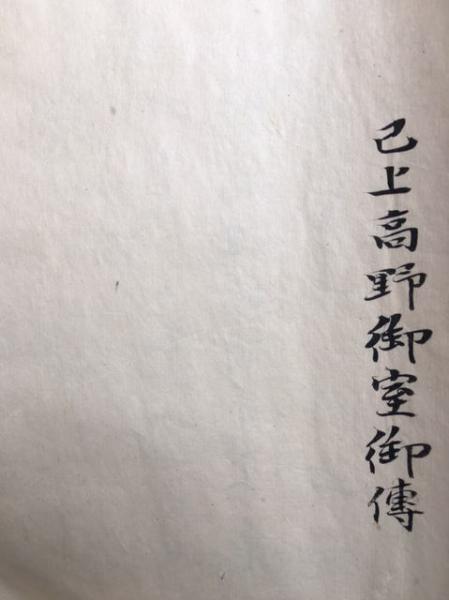 已上高野御室御傳